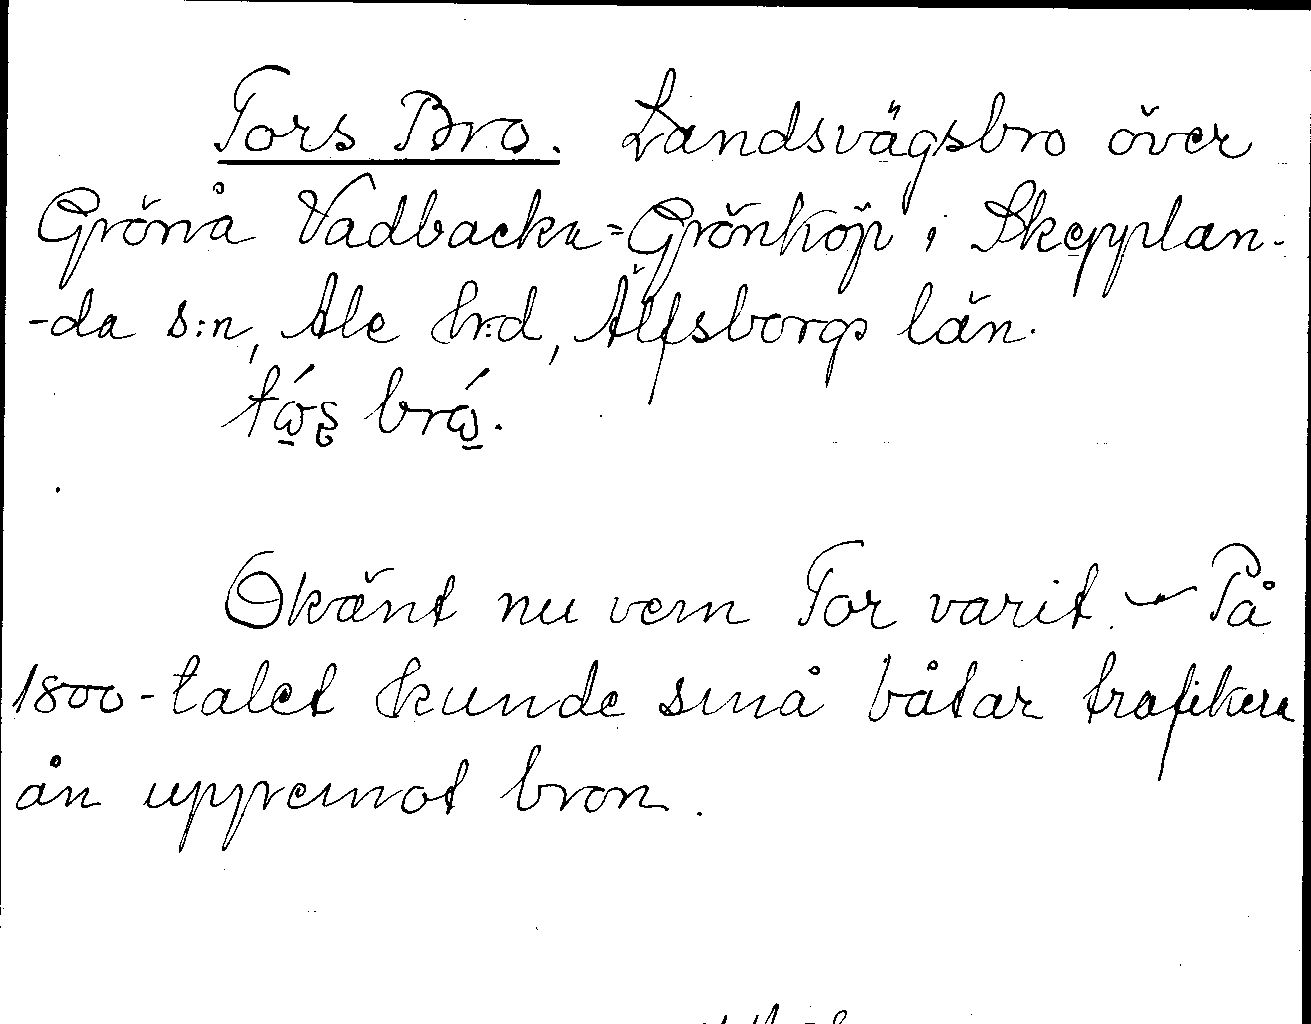 Tors Bro. Landsvägsbro över
Grönå Vadbacka=Grönköp i Skepplan-
-da s:n, Ale h:d, Älfsborgs län.
Okänt nu vem Tor varit. – På
1800-talet kunde små båtar trafikera
ån uppemot bron.